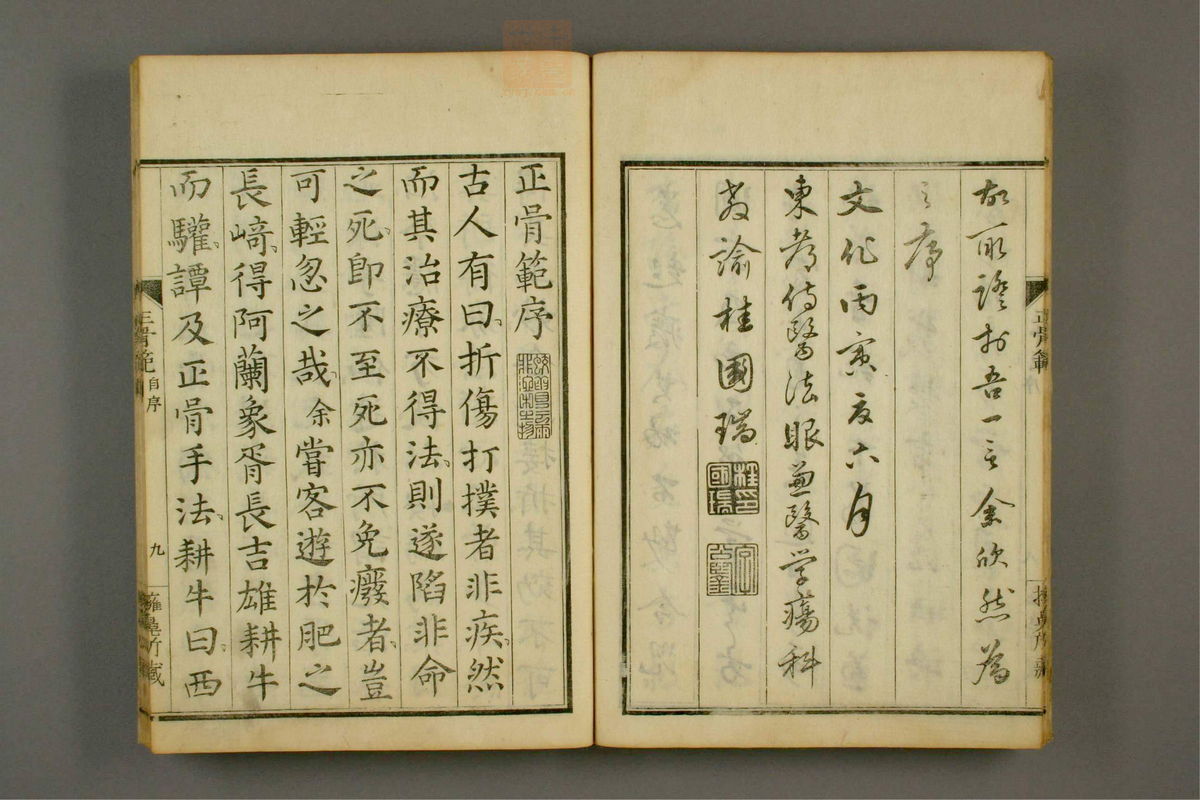 故取證於吾一言余欣然為
之序
文化丙寅夏六月
東都侍醫法眼兼醫学瘍科
教諭桂國瑞
桂印國瑞
正骨範
序
正骨範序
古人有曰折傷打撲者非疾然
而其治療不得法則遂陷非命
之死即不至死亦不免癈者豈
可輕忽之哉余嘗客遊於肥之
長﨑得阿蘭象胥長吉雄耕牛
而驩譚及正骨手法耕牛曰西
正骨範
自序
九